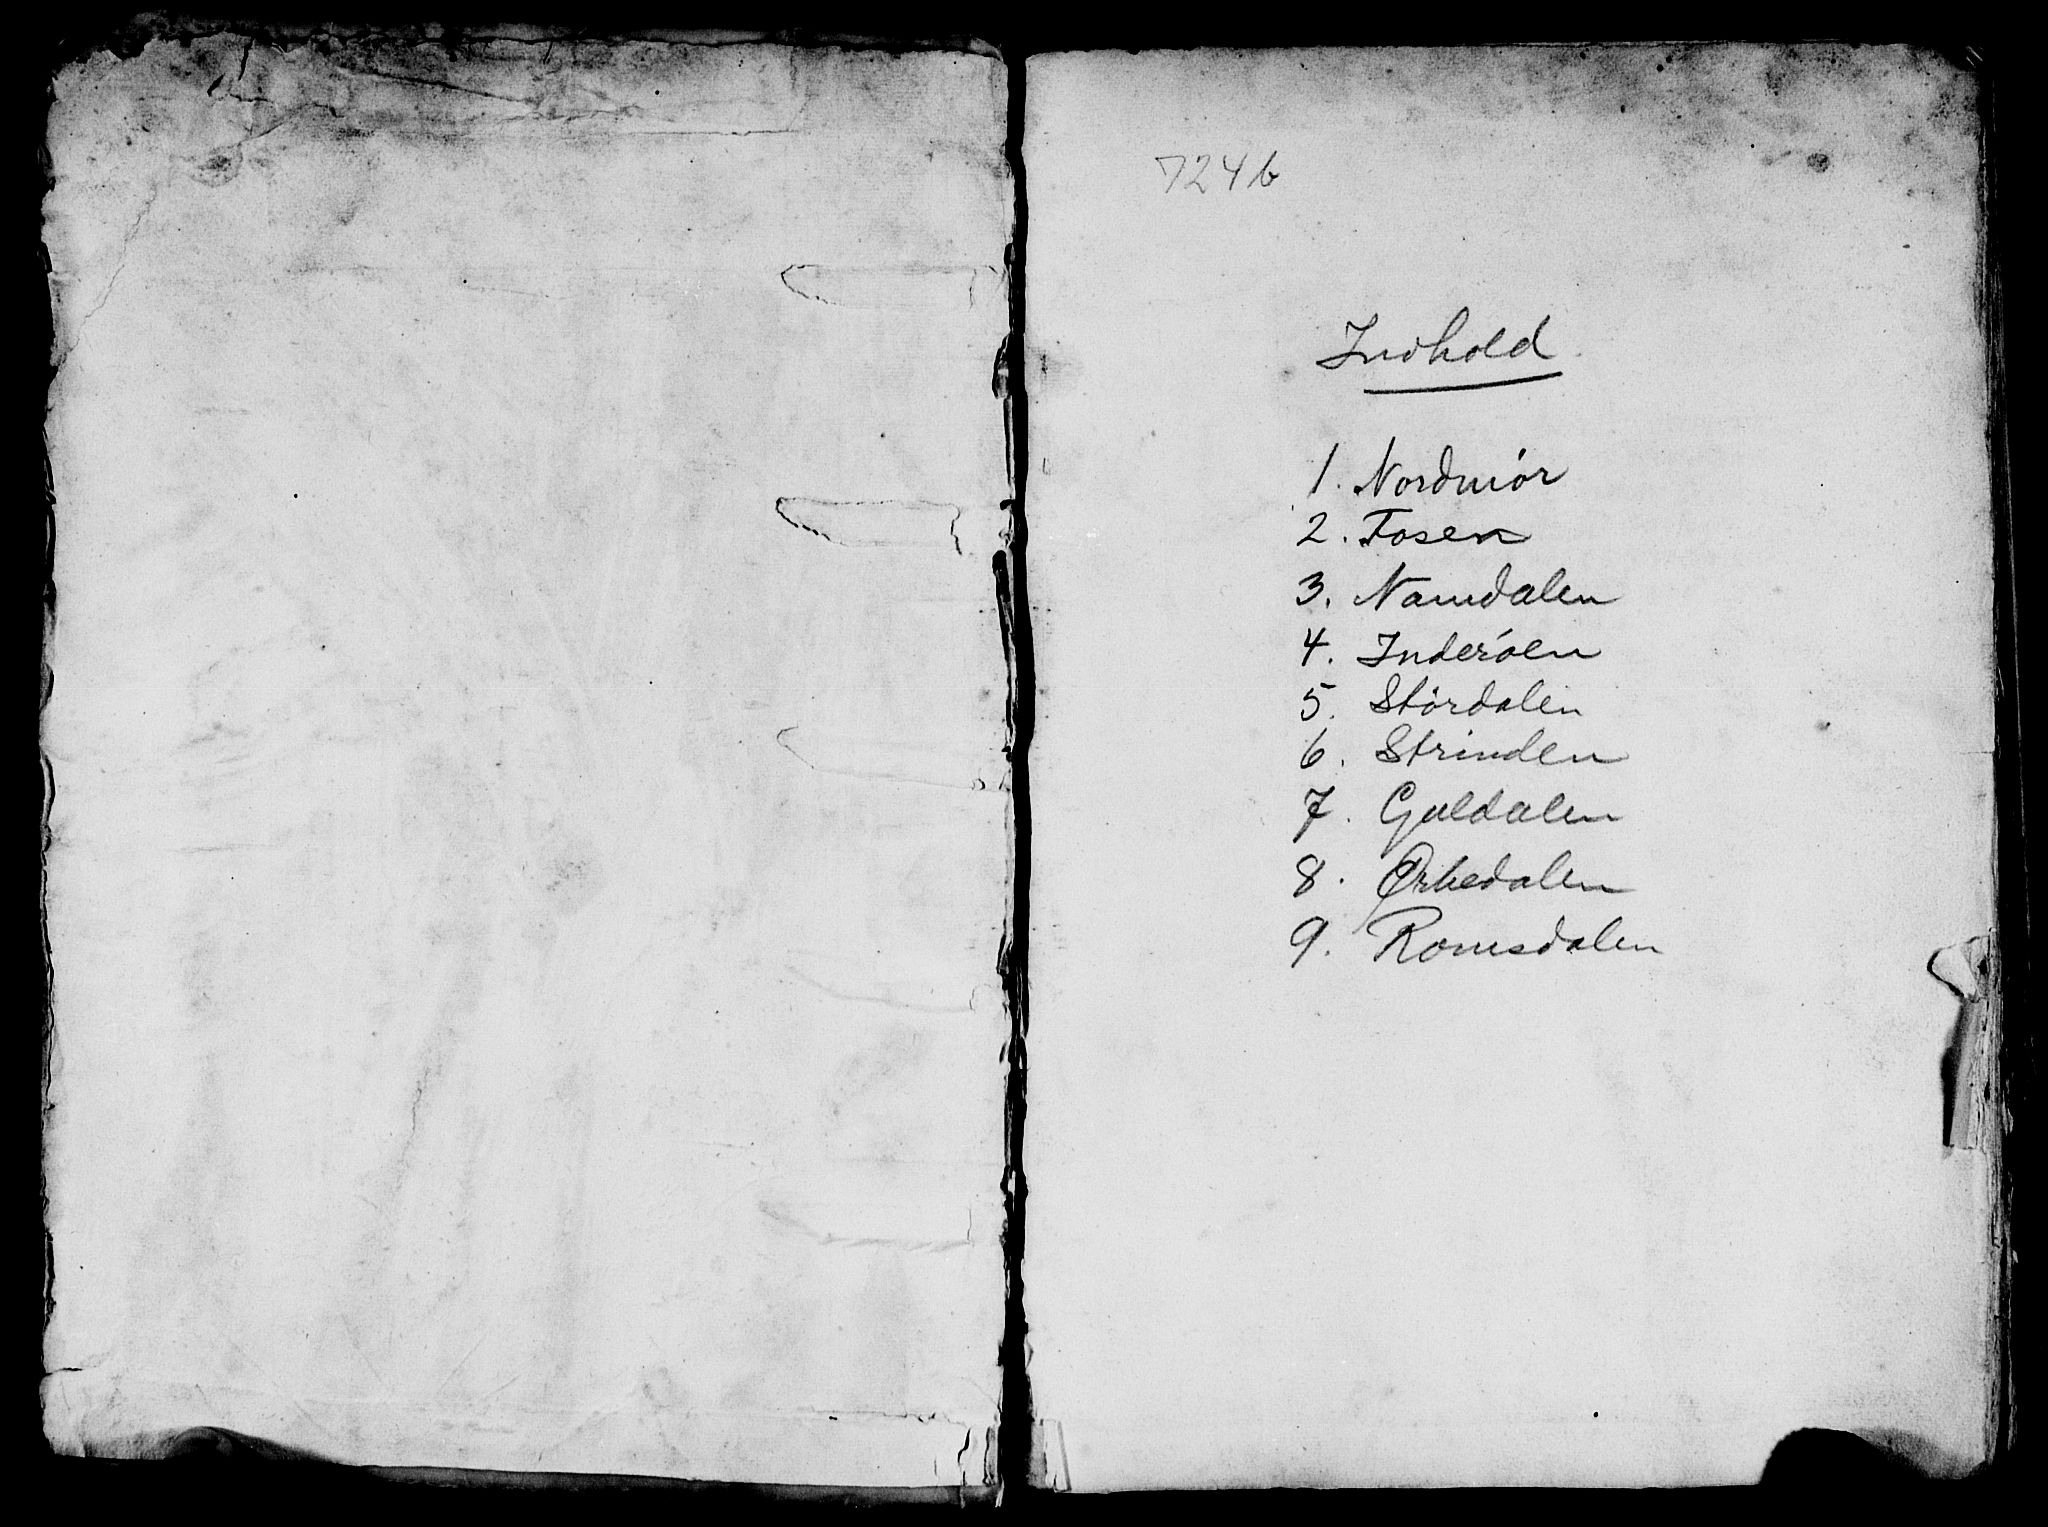 7246
Indhold
1. Nordmör
2. Fosen
3. Namdalen
4. Inderöen
5. Stördalen
6. Strinden
7. Guldalen
8. Örkedalen
9. Romsdalen